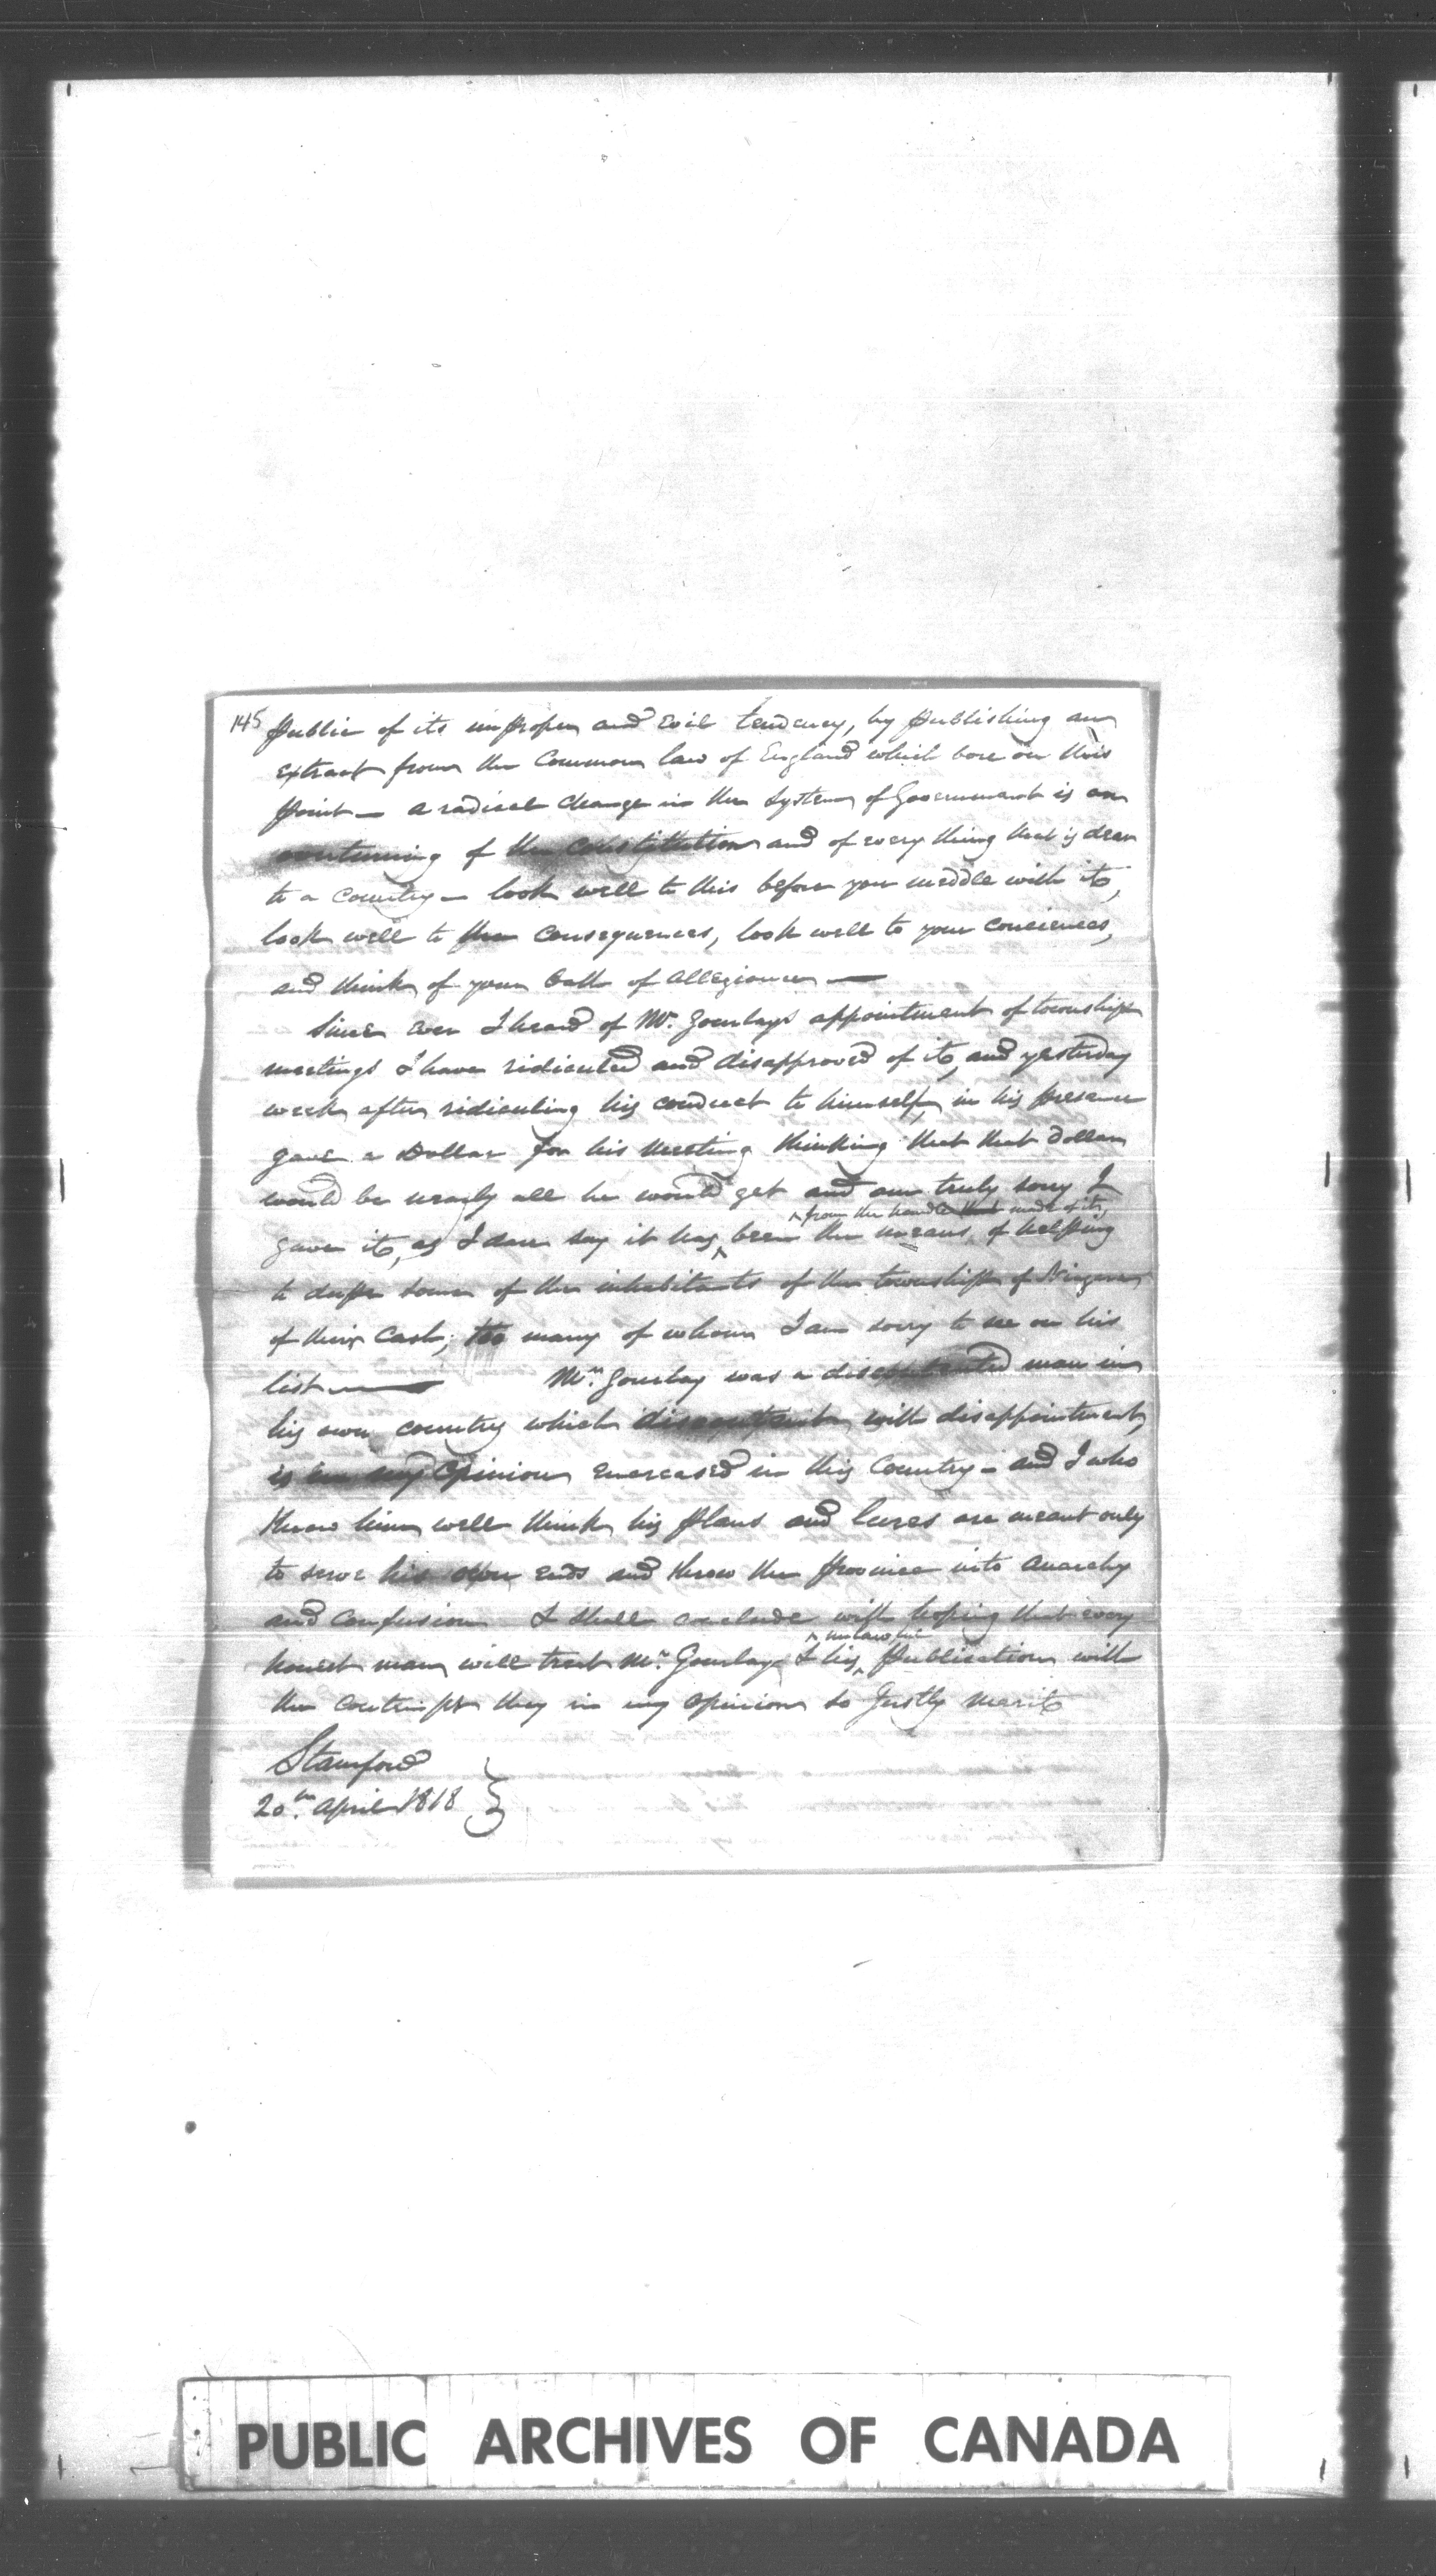 145 public of its improper and evil tendency, by publishing an
extract from the Common law of England which bore on this
point — a radical change in the system of Government is an
overturning of the constitution and of every thing that is dear
to a country — look well to this before you meddle with it,
look well to the consequences, look well to your conciences,
and think of your Oath of Allegiance —
Since ever I heard of Mr. Gourlays appointment of township
meetings I have ridiculed and disapproved of it, and yesterday
week after ridiculing his conduct to himself, in his presence
gave a Dollar for his Meeting thinking that that Dollar
would be nearly all he would get and am truly sorry I
from the handle that made of it,
gave it, as I dare say it has been the means of helping
to dupe some of the inhabitants of the township of Niagara
of their Cash; too many of whom I am sorry to see on his
list — Mr. Gourlay was a discontented man in
his own country which discontent with disappointment,
is in my opinion encreased in this Country — and I who
know him well think his plans and are meant only
to serve his own ends and throw the province into Anarchy
and Confusion I shall conclude with hoping that every
unlawful
honest man will treat Mr. Gourlay & his Publication with
the contempt they in my opinion so justly merit
Stamford
20th. April 1818
PUBLIC ARCHIVES OF CANADA